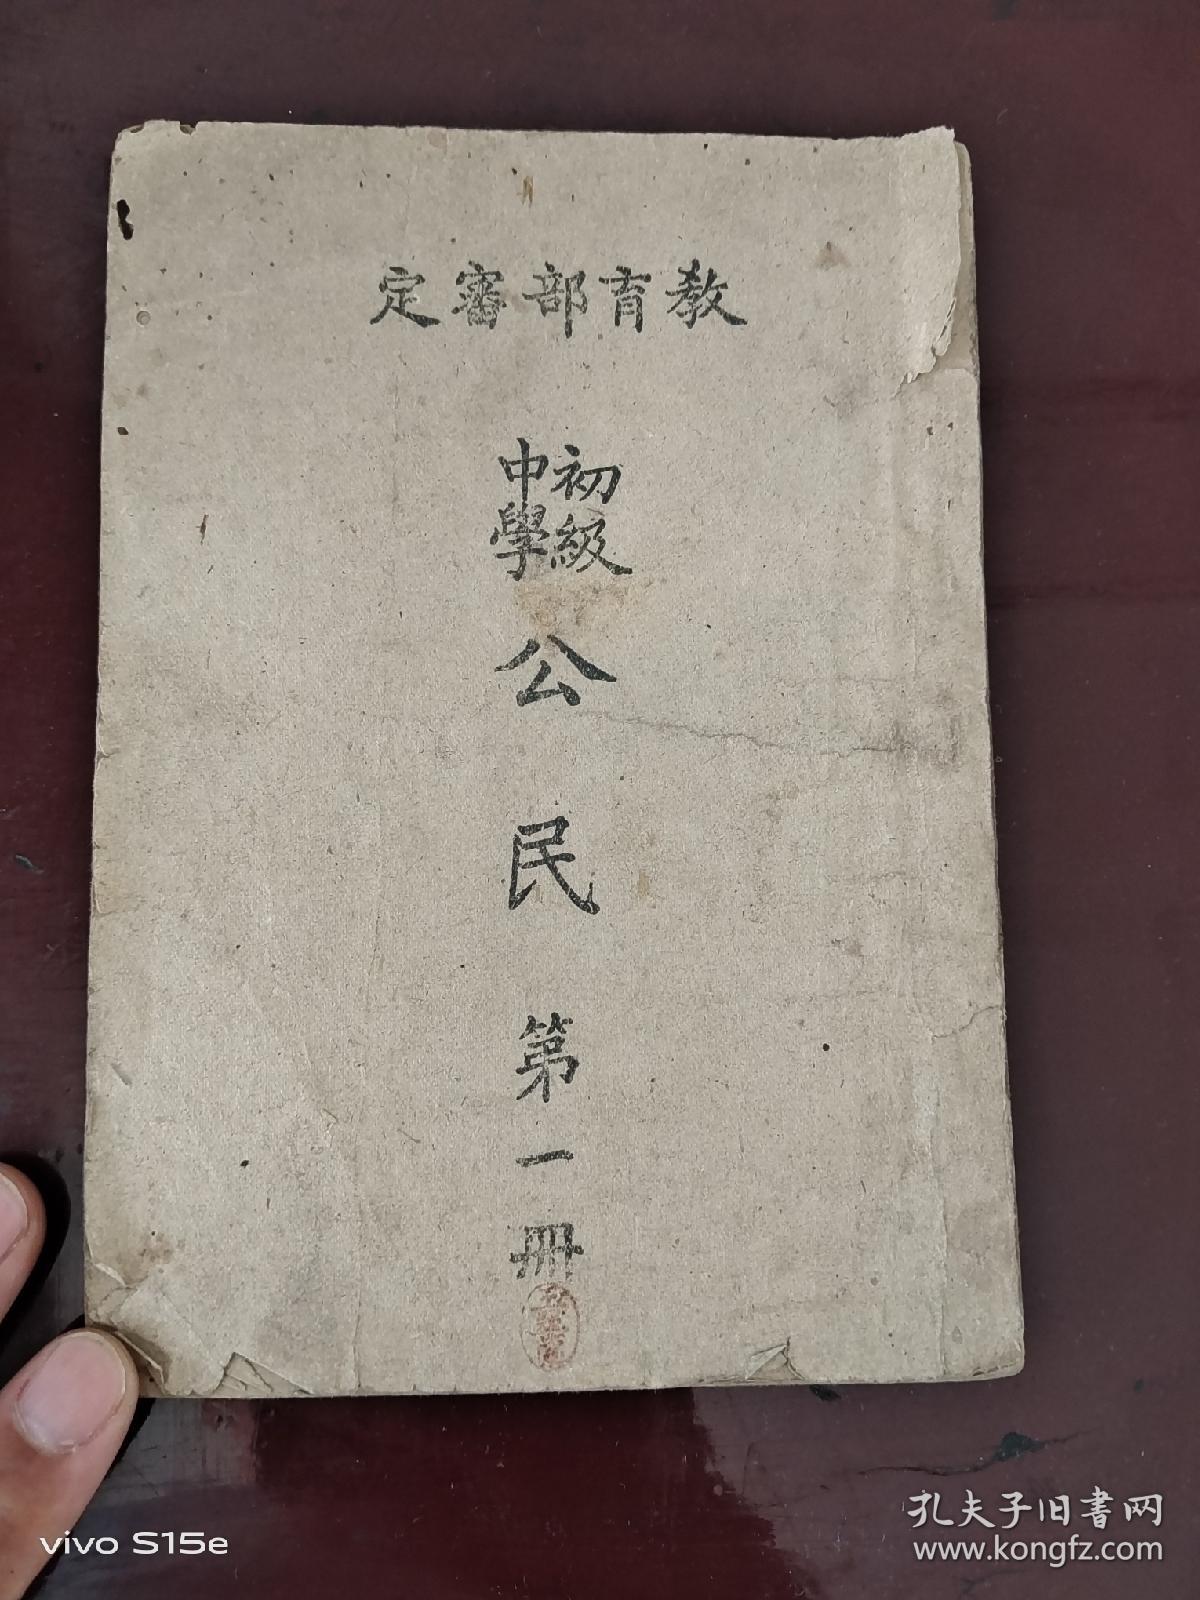 教育部審定
初級
中學
公民
第一冊
vivo S15e
孔夫子旧書网
www.kongfz.com